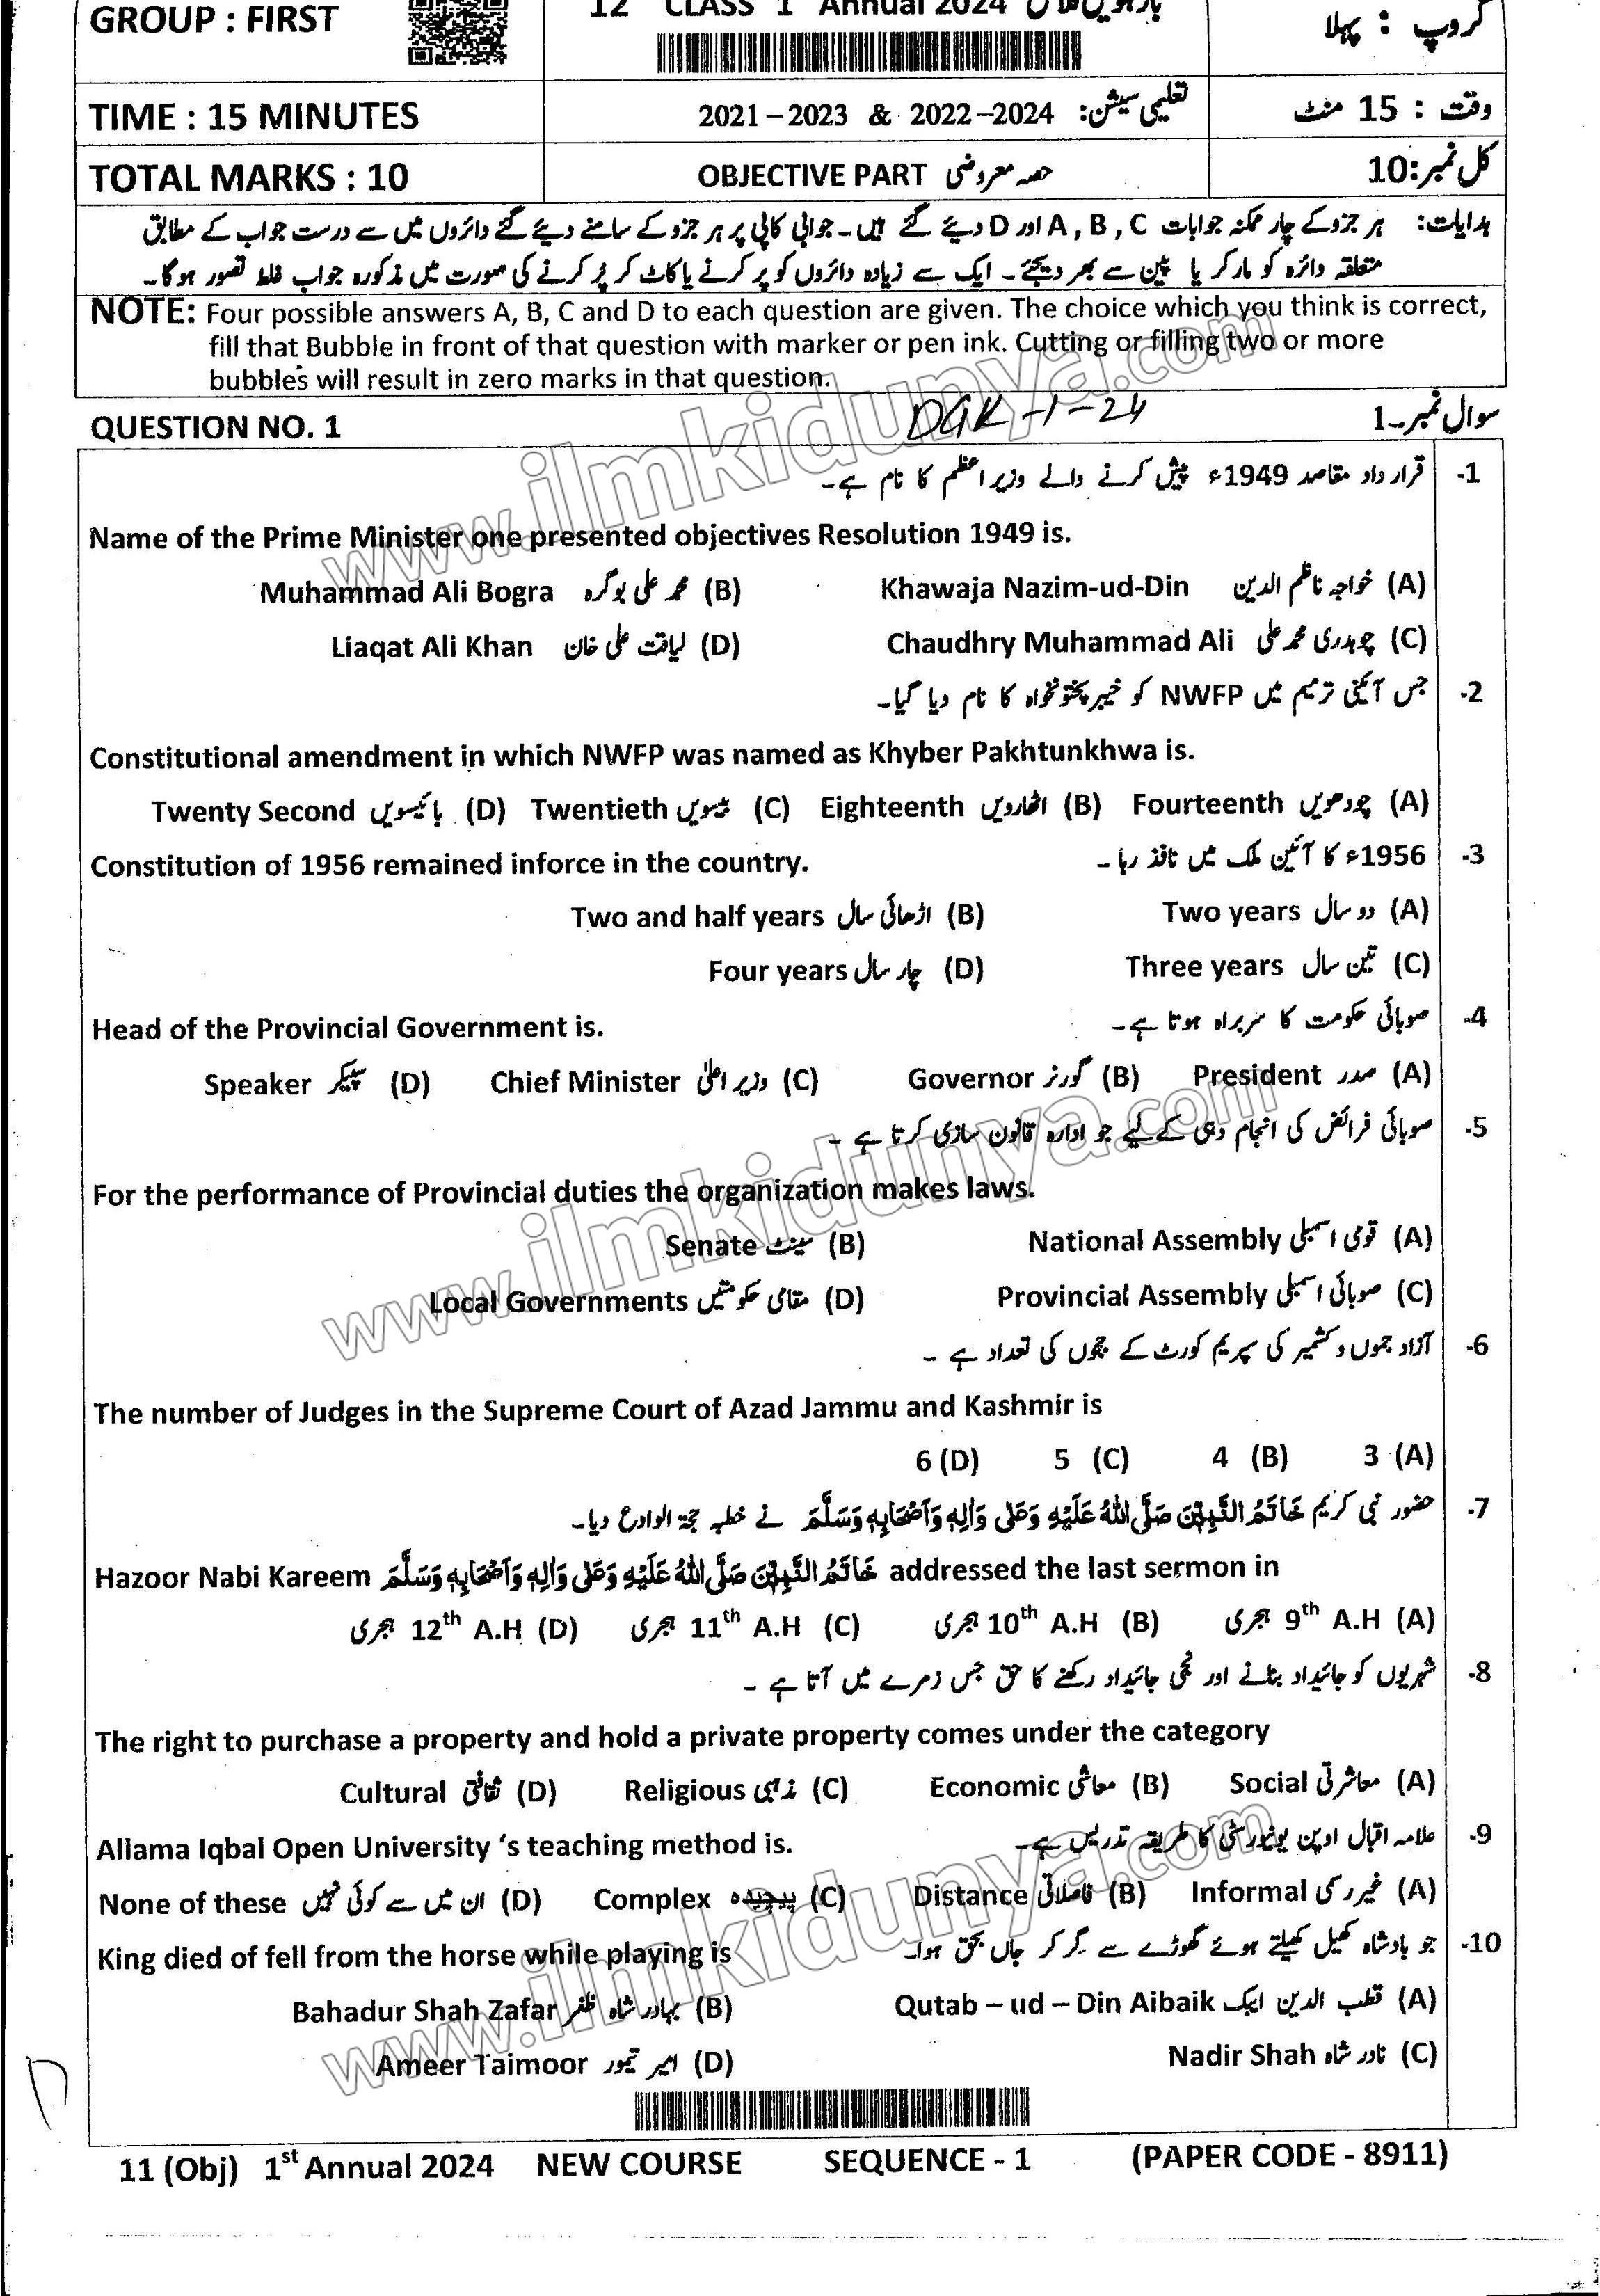 GROUP : FIRST
12 CLASS 1 Annual 2024 بارہویں کلاس
گروپ : پہلا
TIME : 15 MINUTES
تعلیمی سیشن: 2021–2023 & 2022–2024
وقت : 15 منٹ
TOTAL MARKS : 10
OBJECTIVE PART حصہ معروضی
کل نمبر:10
ہدایات: ہر جزو کے چار ممکنہ جوابات A , B , C اور D دیئے گئے ہیں۔ جوابی کاپی پر ہر جزو کے سامنے دیئے گئے دائروں میں سے درست جواب کے مطابق
متعلقہ دائرہ کو مارکر یا پین سے بھر دیجئے۔ ایک سے زیادہ دائروں کو پر کرنے یا کاٹ کر پُر کرنے کی صورت میں مذکورہ جواب غلط تصور ہوگا۔
NOTE: Four possible answers A, B, C and D to each question are given. The choice which you think is correct,
fill that Bubble in front of that question with marker or pen ink. Cutting or filling two or more
bubbles will result in zero marks in that question.
QUESTION NO. 1
DGK-1-24
سوال نمبر۔1
-1 قرار داد مقاصد 1949ء پیش کرنے والے وزیر اعظم کا نام ہے۔
Name of the Prime Minister one presented objectives Resolution 1949 is.
(A) خواجہ ناظم الدین Khawaja Nazim-ud-Din (B) محمد علی بوگرہ Muhammad Ali Bogra
(C) چوہدری محمد علی Chaudhry Muhammad Ali (D) لیاقت علی خان Liaqat Ali Khan
-2 جس آئینی ترمیم میں NWFP کو خیبر پختونخواہ کا نام دیا گیا۔
Constitutional amendment in which NWFP was named as Khyber Pakhtunkhwa is.
(A) چودھویں Fourteenth (B) اٹھارویں Eighteenth (C) بیسویں Twentieth (D) بائیسویں Twenty Second
-3 1956ء کا آئین ملک میں نافذ رہا ۔ Constitution of 1956 remained inforce in the country.
(A) دو سال Two years (B) اڑھائی سال Two and half years
(C) تین سال Three years (D) چار سال Four years
-4 صوبائی حکومت کا سربراہ ہوتا ہے۔ Head of the Provincial Government is.
(A) صدر President (B) گورنر Governor (C) وزیر اعلیٰ Chief Minister (D) سپیکر Speaker
-5 صوبائی فرائض کی انجام دہی کے لیے جو ادارہ قانون سازی کرتا ہے ۔
For the performance of Provincial duties the organization makes laws.
(A) قومی اسمبلی National Assembly (B) سینٹ Senate
(C) صوبائی اسمبلی Provincial Assembly (D) مقامی حکومتیں Local Governments
-6 آزاد جموں و کشمیر کی سپریم کورٹ کے ججوں کی تعداد ہے ۔
The number of Judges in the Supreme Court of Azad Jammu and Kashmir is
(A) 3 (B) 4 (C) 5 (D) 6
-7 حضور نبی کریم خَاتَمُ النَّبِیّٖنَ صَلَّی اللہُ عَلَیْہِ وَعَلٰی وَاٰلِہٖ وَاَصْحَابِہٖ وَسَلَّمَ نے خطبہ حجۃ الوادع دیا۔
Hazoor Nabi Kareem خَاتَمُ النَّبِیّٖنَ صَلَّی اللہُ عَلَیْہِ وَعَلٰی وَاٰلِہٖ وَاَصْحَابِہٖ وَسَلَّمَ addressed the last sermon in
(A) 9th A.H ہجری (B) 10th A.H ہجری (C) 11th A.H ہجری (D) 12th A.H ہجری
-8 شہریوں کو جائیداد بنانے اور نجی جائیداد رکھنے کا حق جس زمرے میں آتا ہے ۔
The right to purchase a property and hold a private property comes under the category
(A) معاشرتی Social (B) معاشی Economic (C) مذہبی Religious (D) ثقافتی Cultural
-9 علامہ اقبال اوپن یونیورسٹی کا طریقہ تدریس ہے۔ Allama Iqbal Open University ‘s teaching method is.
(A) غیر رسمی Informal (B) فاصلاتی Distance (C) پیچیدہ Complex (D) ان میں سے کوئی نہیں None of these
-10 جو بادشاہ کھیل کھیلتے ہوئے گھوڑے سے گر کر جاں بحق ہوا۔ King died of fell from the horse while playing is
(A) قطب الدین ایبک Qutab – ud – Din Aibaik (B) بہادر شاہ ظفر Bahadur Shah Zafar
(C) نادر شاہ Nadir Shah (D) امیر تیمور Ameer Taimoor
11 (Obj) 1st Annual 2024 NEW COURSE SEQUENCE - 1 (PAPER CODE - 8911)
www.ilmkidunya.com
www.ilmkidunya.com
www.ilmkidunya.com